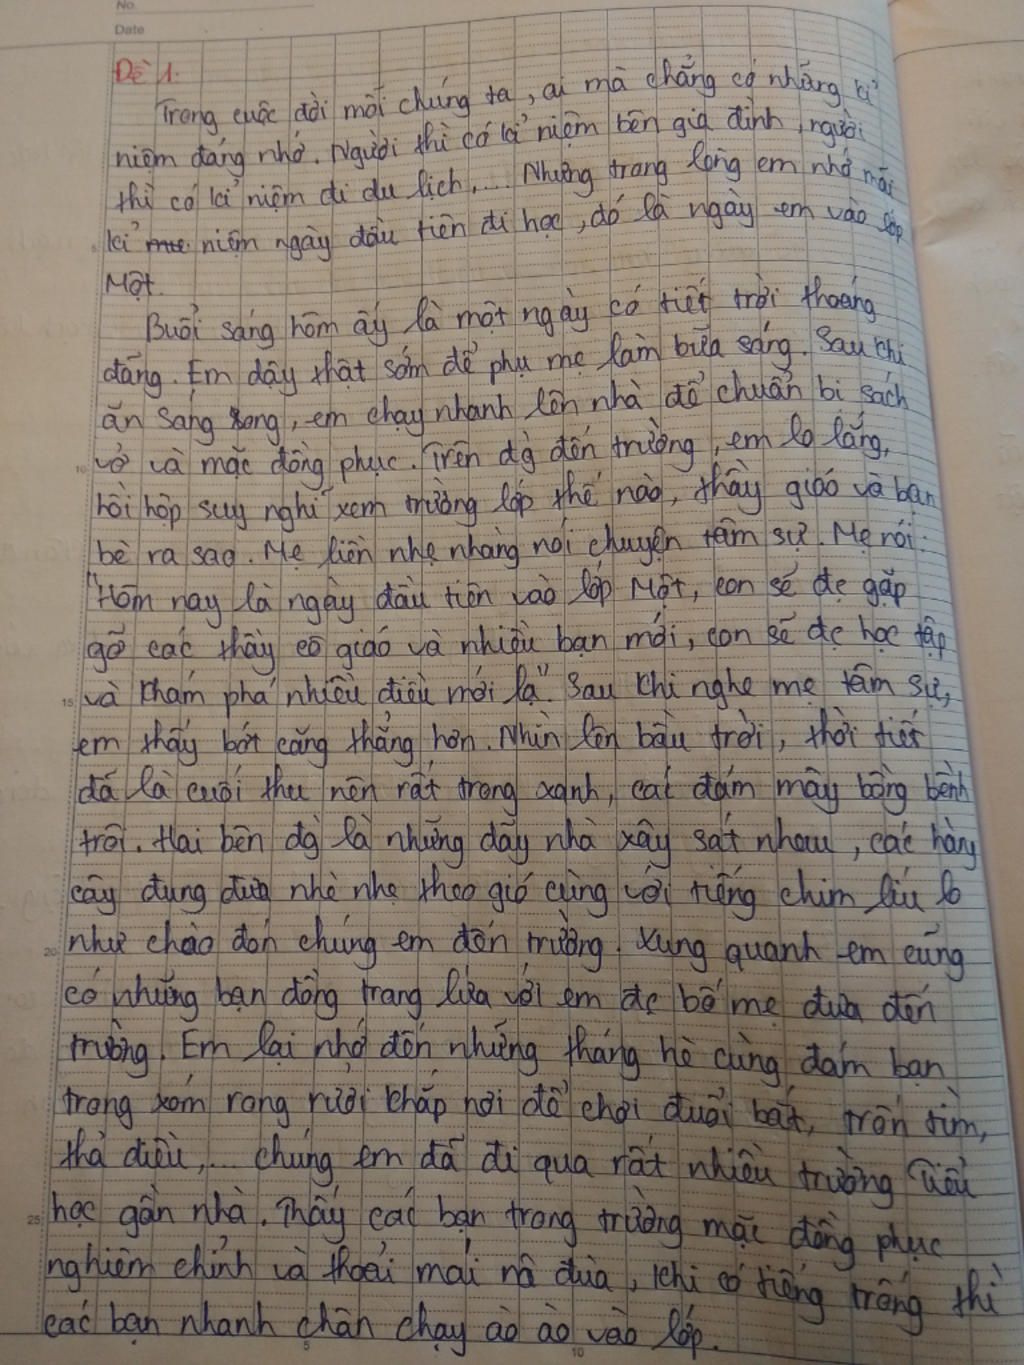 No.
Date
Đề 1.
Trong cuộc đời mỗi chúng ta, ai mà chẳng có những kỉ
niệm đáng nhớ. Người thì có kỉ niệm bên gia đình, người
thì có kỉ niệm đi du lịch,... Nhưng trong lòng em nhớ mãi
kỉ niệm ngày đầu tiên đi học, đó là ngày em vào lớp
Một.
Buổi sáng hôm ấy là một ngày có tiết trời thoáng
đãng. Em dậy thật sớm để phụ mẹ làm bữa sáng. Sau khi
ăn sáng xong, em chạy nhanh lên nhà để chuẩn bị sách
vở và mặc đồng phục. Trên đg đến trường, em lo lắng,
hồi hộp suy nghĩ xem trường lớp thế nào, thầy giáo và bạn
bè ra sao. Mẹ liền nhẹ nhàng nói chuyện tâm sự. Mẹ nói:
"Hôm nay là ngày đầu tiên vào lớp Một, con sẽ đc gặp
gỡ các thầy cô giáo và nhiều bạn mới, con sẽ đc học tập
và khám phá nhiều điều mới lạ". Sau khi nghe mẹ tâm sự,
em thấy bớt căng thẳng hơn. Nhìn lên bầu trời, thời tiết
đã là cuối thu nên rất trong xanh, các đám mây bồng bềnh
trôi. Hai bên đg là những dãy nhà xây sát nhau, các hàng
cây đung đưa nhè nhẹ theo gió cùng với tiếng chim líu lo
như chào đón chúng em đến trường. Xung quanh em cũng
có những bạn đồng trang lứa với em đc bố mẹ đưa đến
trường. Em lại nhớ đến những tháng hè cùng đám bạn
trong xóm rong ruổi khắp nơi để chơi đuổi bắt, trốn tìm,
thả diều,... chúng em đã đi qua rất nhiều trường Tiểu
học gần nhà. Thấy các bạn trong trường mặc đồng phục
nghiêm chỉnh và thoải mái nô đùa, khi có tiếng trống thì
các bạn nhanh chân chạy ào ào vào lớp.
5
10
15
20
25
5
10